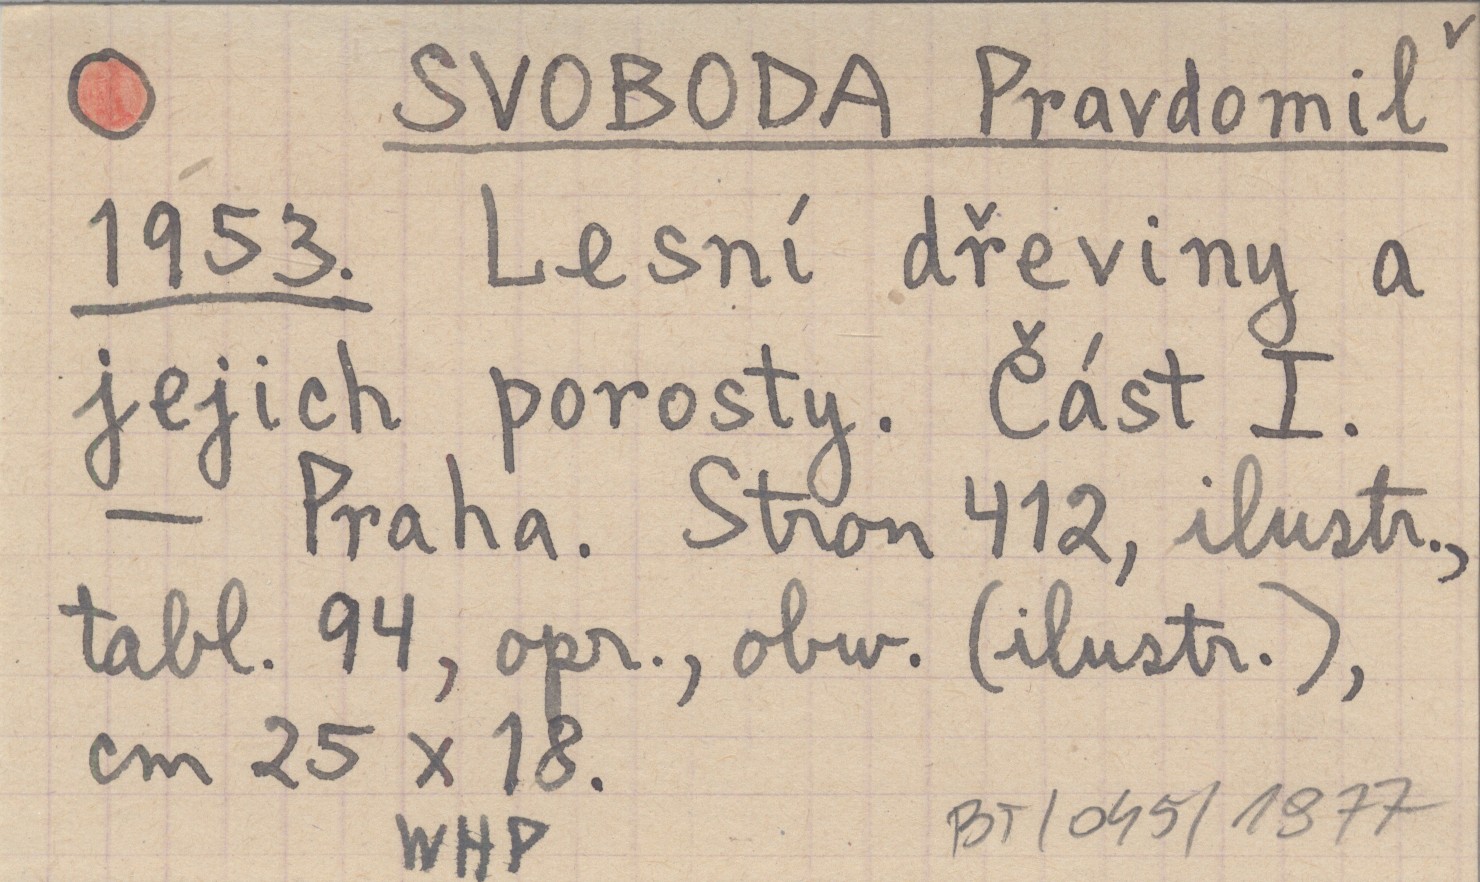 SVOBODA Pravdomil
1953. Lesní dřeviny a
jejich porosty. Část I.
— Praha. Stron 412, ilustr.,
tabl. 94, opr., obw. (ilustr.),
cm 25 x 18.
WHP
BT/045/1877